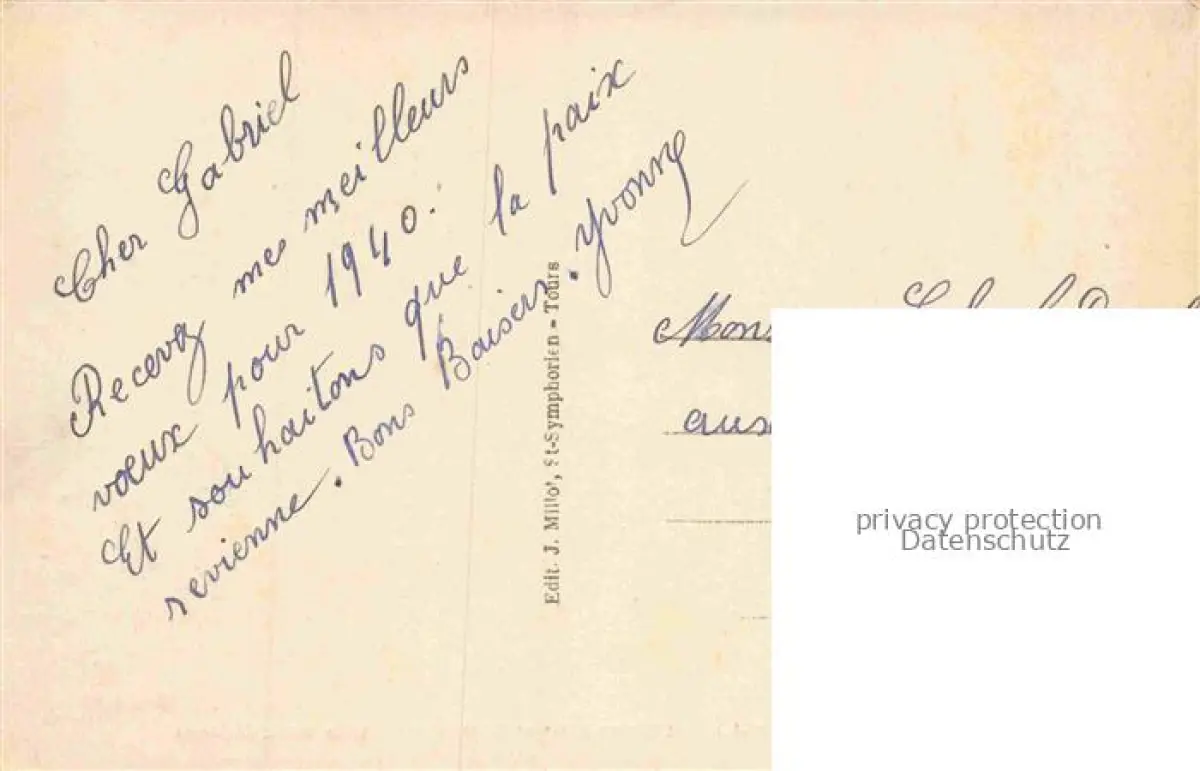 Cher Gabriel
Recevez mes meilleurs
vœux pour 1940.
Et souhaitons que la paix
revienne. Bons Baisers. Yvonne
Edit. J. Millot, St-Symphorien - Tours
privacy protection
Datenschutz